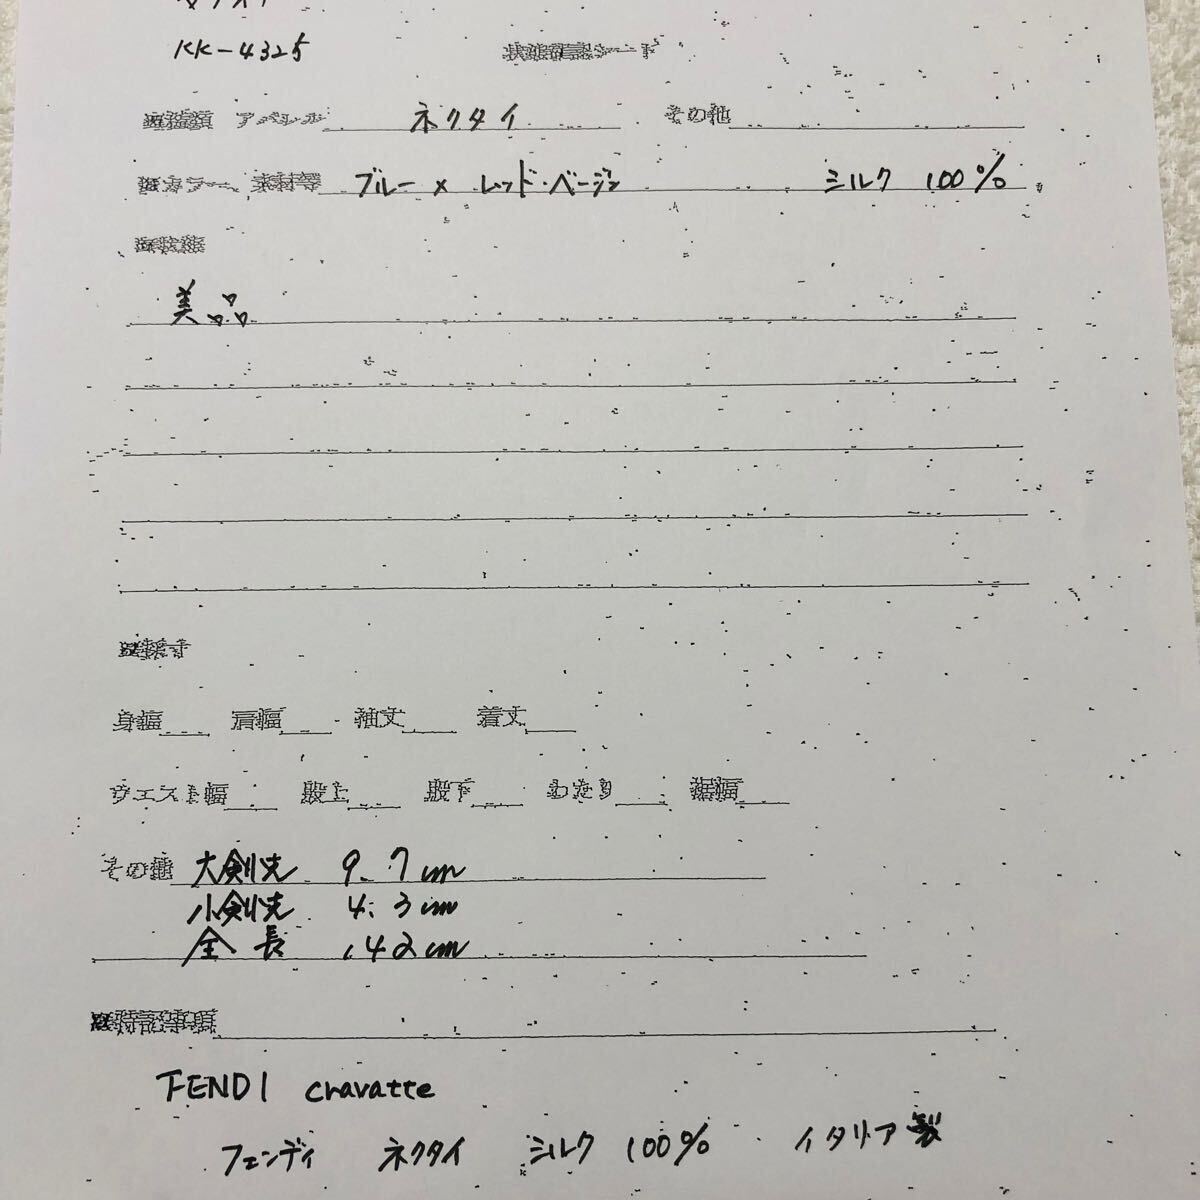 KK-4325
状態確認シート
アパレル ネクタイ その他
カラー、素材等 ブルー × レッド・ベージュ シルク 100%
※状態
美品
※採寸
身幅 肩幅 袖丈 着丈
ウエスト幅 股上 股下 わたり 裾幅
その他 大剣先 9.7cm
小剣先 4.3cm
全長 142cm
※特記事項
FENDI cravatte
フェンディ ネクタイ シルク 100% イタリア製